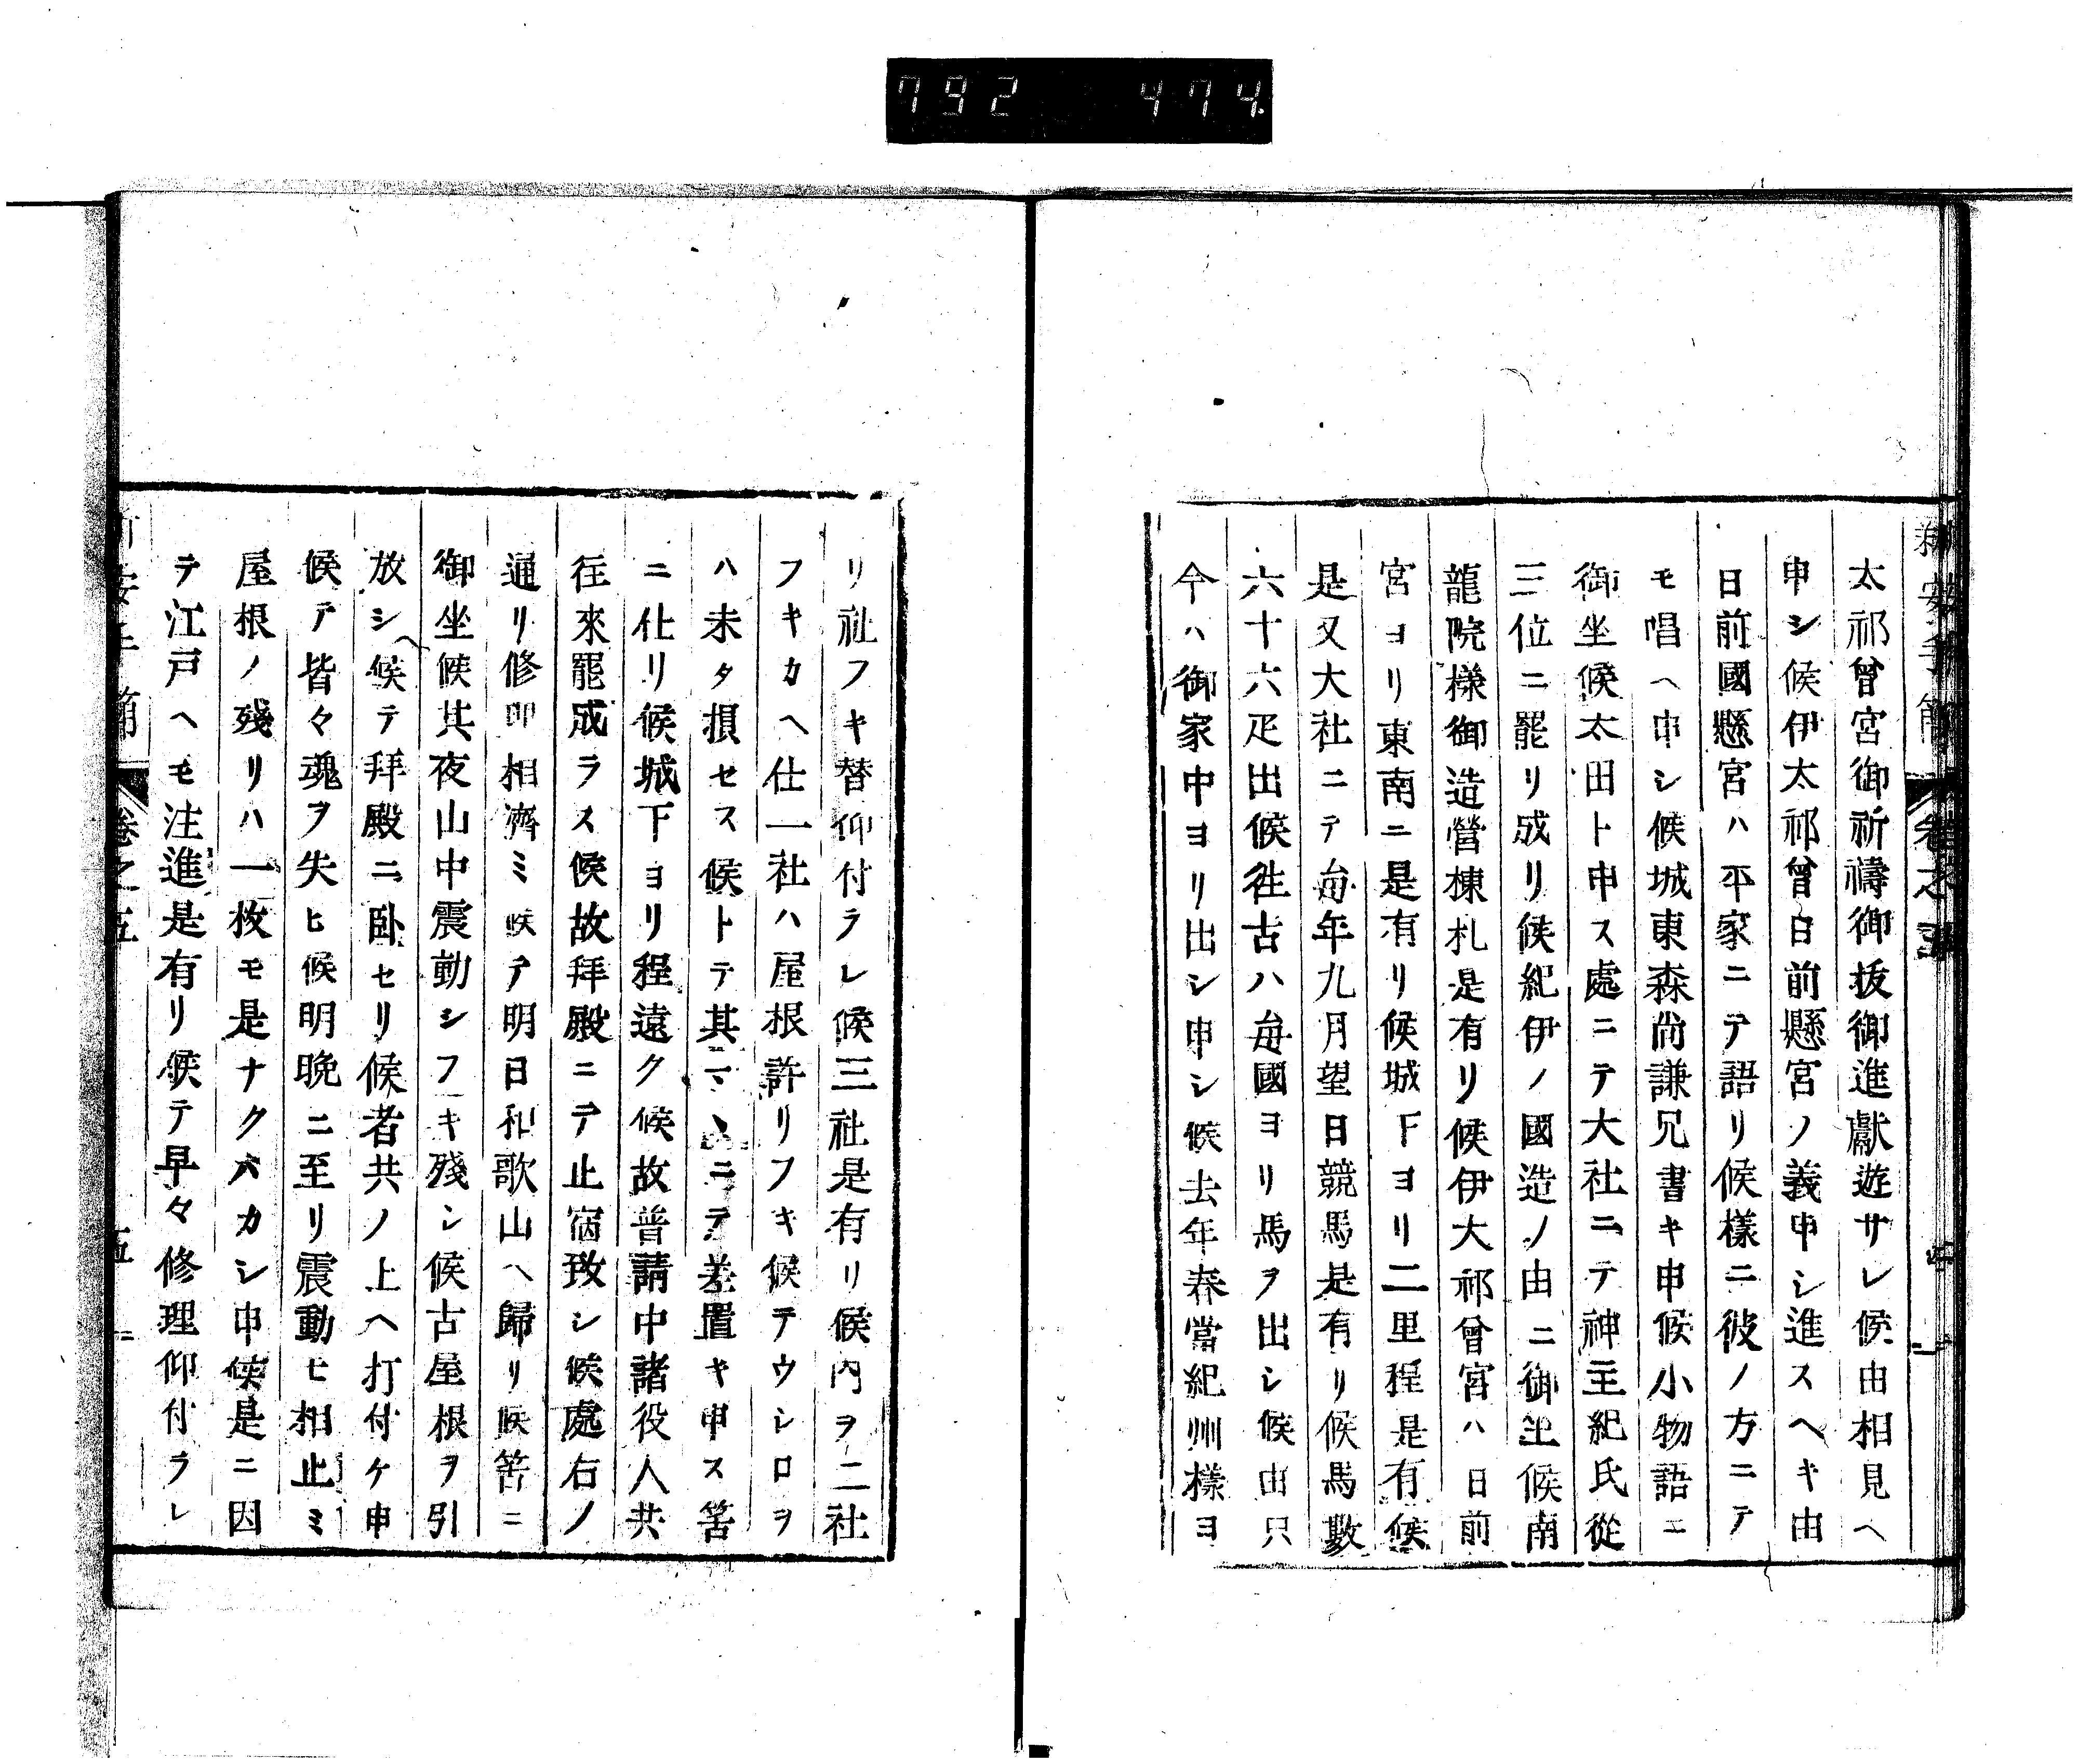 792 474
新安手簡 卷之五 四
太祁曾宮御祈禱御抜御進獻遊サレ候由相見ヘ
申シ候伊太祁曾日前懸宮ノ義申シ進スヘキ由
日前國懸宮ハ平家ニテ語リ候様ニ彼ノ方ニテ
モ唱ヘ申シ候城東森尚謙兄書キ申候小物語ニ
御坐候太田ト申ス處ニテ大社ニテ神主紀氏從
三位ニ罷リ成リ候紀伊ノ國造ノ由ニ御坐候南
龍院様御造營棟札是有リ候伊大祁曾宮ハ日前
宮ヨリ東南ニ是有リ候城下ヨリ二里程是有候
是又大社ニテ毎年九月望日競馬是有リ候馬數
六十六疋出候徃古ハ毎國ヨリ馬ヲ出シ候由只
今ハ御家中ヨリ出シ申シ候去年春當紀州様ヨ
リ社フキ替仰付ラレ候三社是有リ候内ヲ二社
フキカヘ仕一社ハ屋根許リフキ候テウシロヲ
ハ未タ損セス候トテ其マヽニテ差置キ申ス筈
ニ仕リ候城下ヨリ程遠ク候故普請中諸役人共
徃來罷成ラス候故拜殿ニテ止宿致シ候處右ノ
通リ修郎相濟ミ候テ明日和歌山ヘ歸リ候筈ニ
御坐候其夜山中震動シフキ殘シ候古屋根ヲ引
放シ候テ拜殿ニ臥セリ候者共ノ上ヘ打付ケ申
候テ皆々魂ヲ失ヒ候明晩ニ至リ震動ヒ相止ミ
屋根ノ殘リハ一枚モ是ナクハカシ申候是ニ因
テ江戸ヘモ注進是有リ候テ早々修理仰付ラレ
卷之五 五